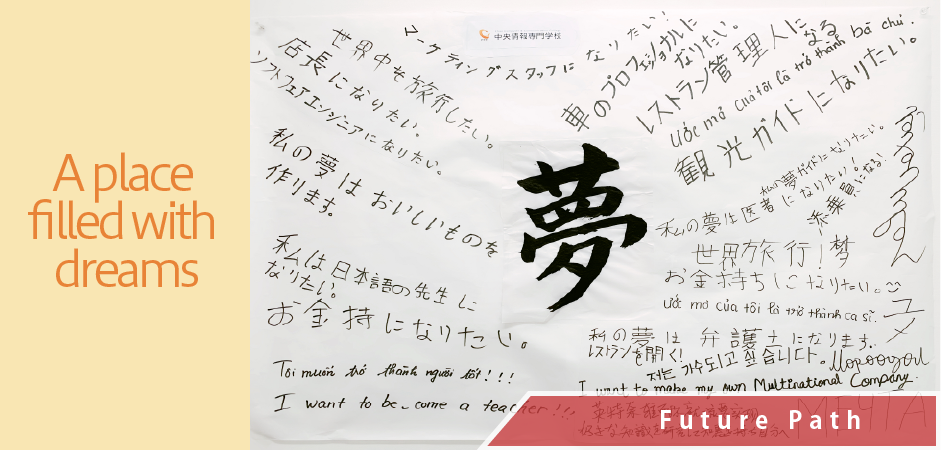 A place
filled with
dreams
中央情報専門学校
マーケティングスタッフになりたい!
世界中を旅行したい。
店長になりたい。
ソフトフェアエンジニアになりたい。
私の夢はおいしいものを
作ります。
私は日本語の先生に
なりたい。
お金持になりたい。
Tôi muốn trở thành người tốt!!!
I want to be come a teacher!!!
夢
車のプロフェッショナルに
なりたい。
レストラン管理人になる
ước mơ của tôi là trở thành bà chủ.
観光ガイドになりたい。
私の夢ガイドになりたい。
私の夢は医者になりたい!
添乗員になる!
世界旅行!梦
お金持ちになりたい。
ước mơ của tôi là trở thành ca sĩ.
ユメ
私の夢は弁護士になります。
レストランを開く!
저는 가수되고 싶습니다.
I want to make my own Multinational Company.
MEЧTA
Future Path